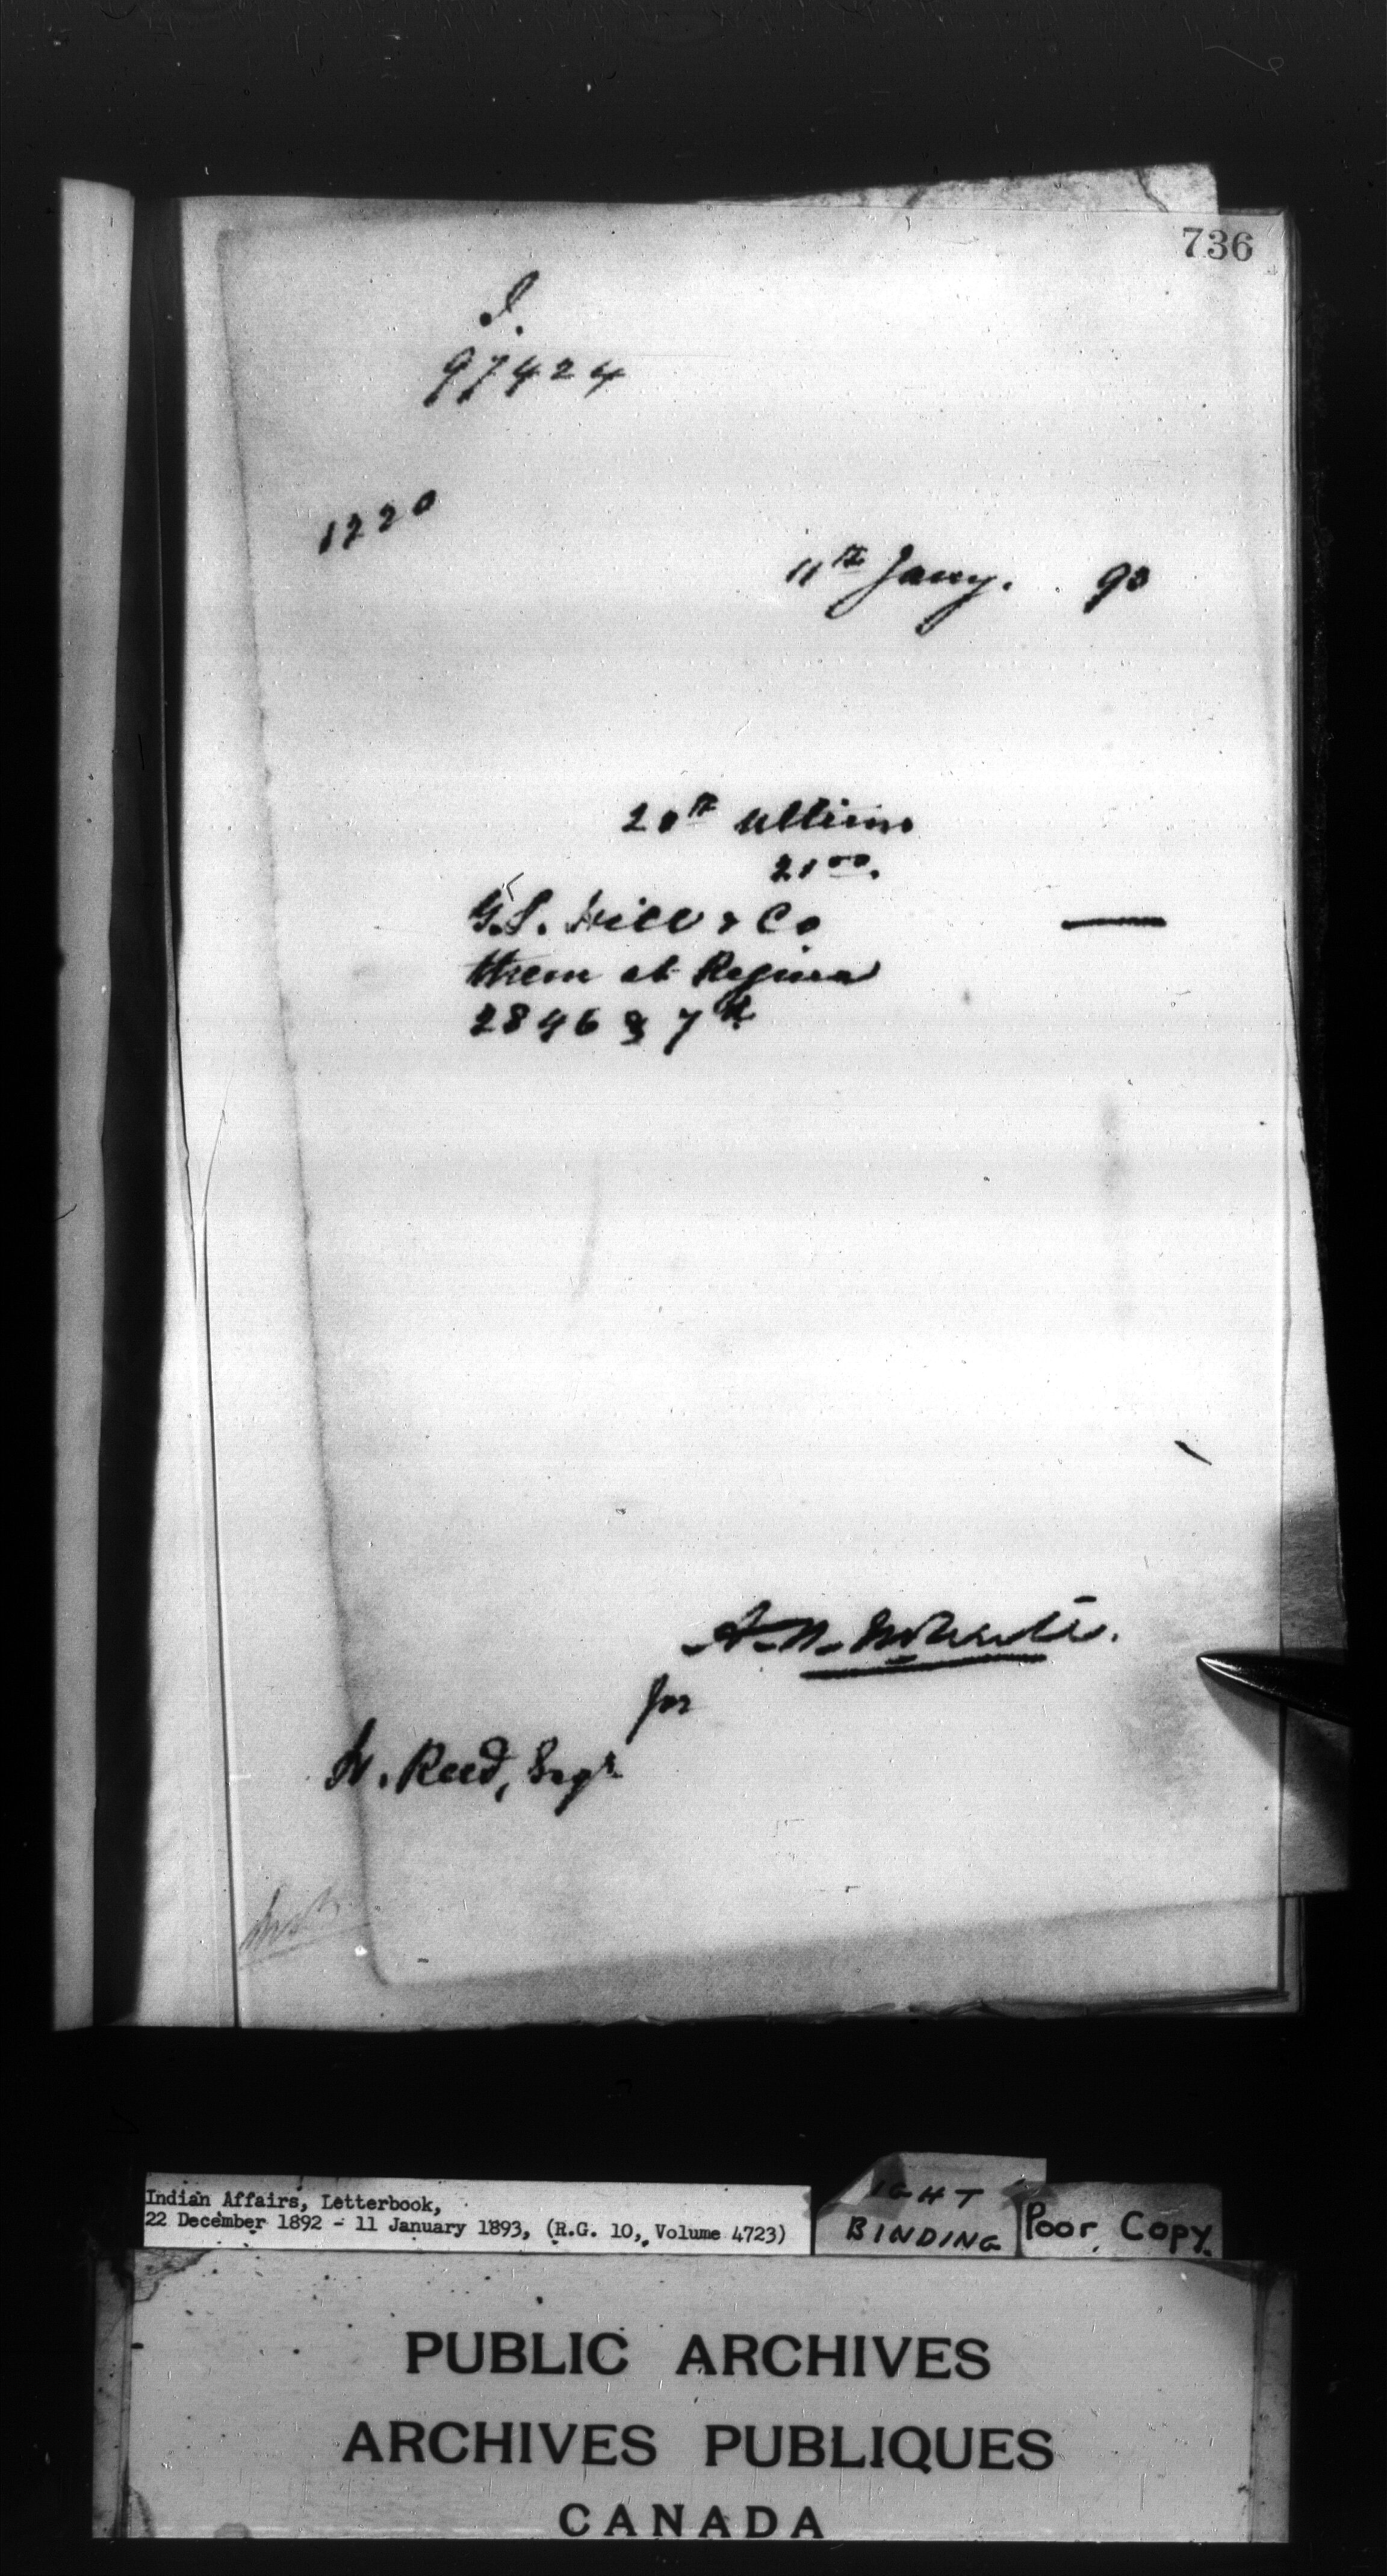 736
97424
1220
11th Jany. 93
20th ultimo
21 00.
G.S. & Co
them at Regina
2846 & 7
for
H. Reed, Esqr
Indian Affairs, Letterbook,
22 December 1892 - 11 January 1893, (R.G. 10, Volume 4723)
IGHT
BINDING
Poor Copy.
PUBLIC ARCHIVES
ARCHIVES PUBLIQUES
CANADA